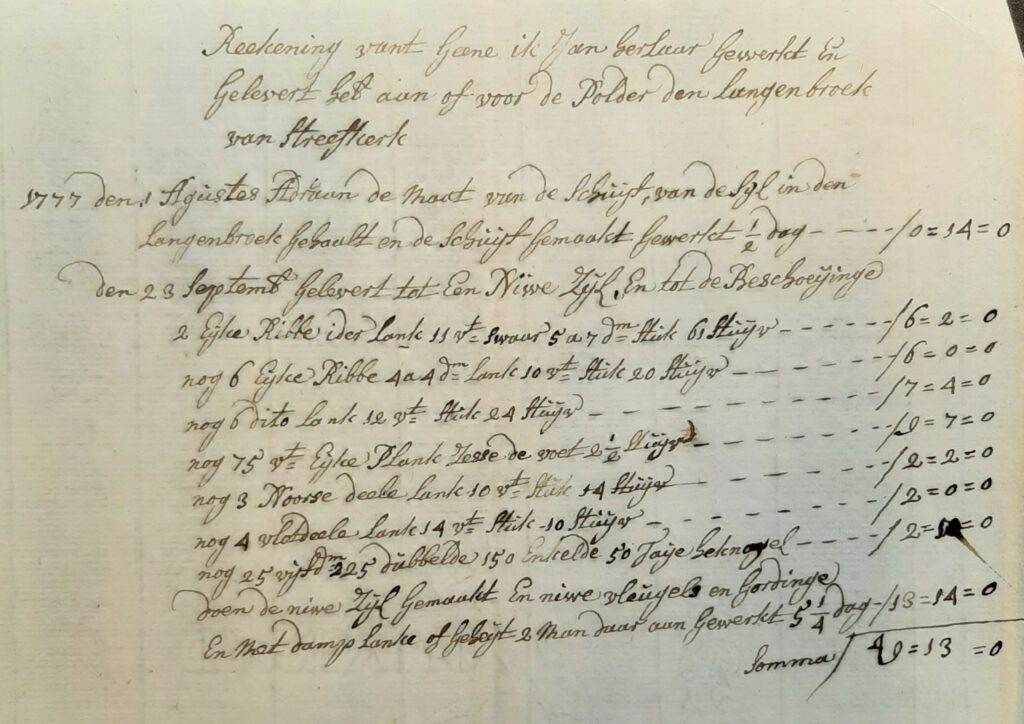 Reekening vant Geene ik Jan herlaar Gewerkt En
Gelevert heb aan of voor de Polder den Langenbroek
van Streefkerk
1777 den 1 Agustes Adraan de Maat van de Schuijt, van de Syl in den
Langenbroek Gehaalt en de Schuijt Gemaakt Gewerkt 1/2 dag - - - - /0=14=0
den 23 Septemb Gelevert tot Een Niwe Zyl, En tot de Beschoeijinge
2 Eyke Ribbe ider Lank 11 vt swaar 5 a 7 dm Stuk 61 Stuyv - - - - - - /6=2=0
nog 6 Eyke Ribbe 4 a 4 dm Lank 10 vt Stuk 20 Stuyv - - - - - - /6=0=0
nog 6 dito Lank 12 vt Stuk 24 Stuyv - - - - - - - - /7=4=0
nog 75 vt Eyke Plank Zesse de voet 2 1/2 Stuyve - - - - - - /9=7=0
nog 3 Noorse deele Lank 10 vt Stuk 14 Stuyv - - - - - - /2=2=0
nog 4 vlotdeele Lank 14 vt Stuk 10 Stuyv - - - - - - /2=0=0
nog 25 vijfdm 225 dubbelde 150 Enkelde 50 Taije heknagel - - - - /2= =0
doen de niwe Zyl Gemaakt En niwe vleugels en Gordinge
En Met damp Lanke of Geheyt 2 Man daar aan Gewerkt 5 1/4 dag - /13=14=0
Somma / 49=13=0